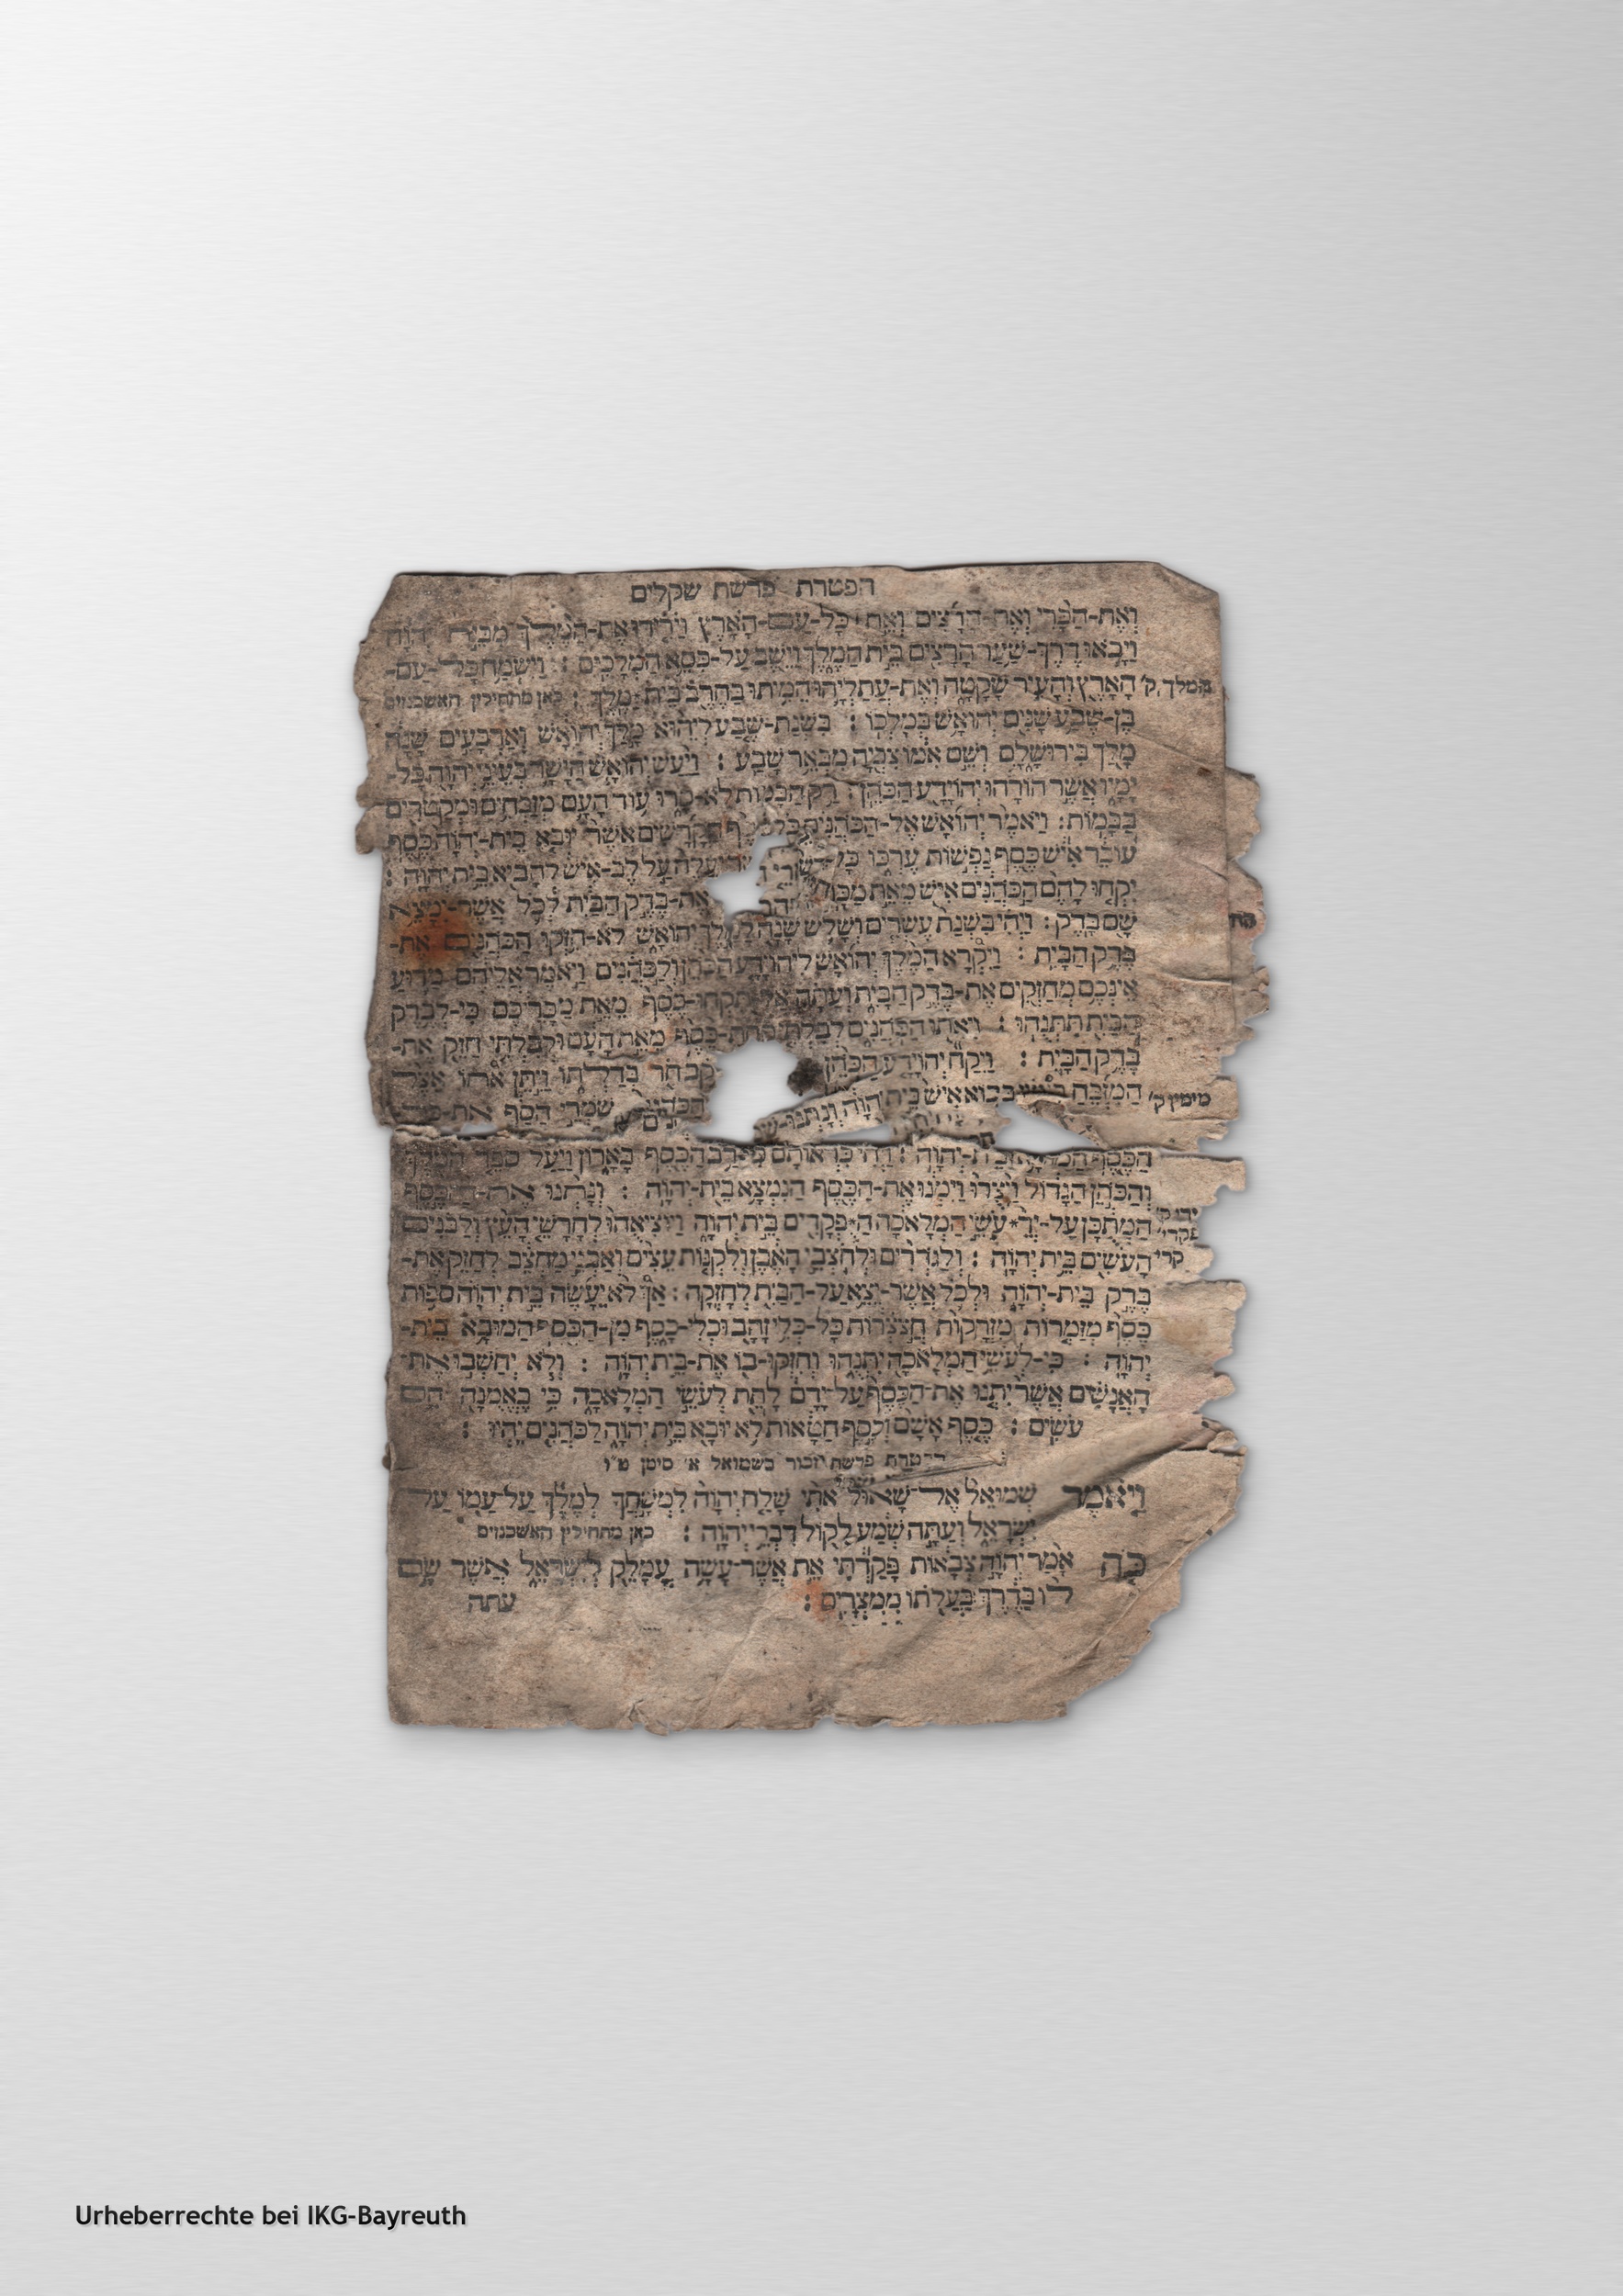 הפטרת פרשת שקלים
וְאֶת-הַכָּרִי וְאֶת-הָרָצִים וְאֵת כָּל-עַם-הָאָרֶץ וַיֹּרִידוּ אֶת-הַמֶּלֶךְ מִבֵּית יְהוָה
וַיָּבֹאוּ דֶּרֶךְ-שַׁעַר הָרָצִים בֵּית הַמֶּלֶךְ וַיֵּשֶׁב עַל-כִּסֵּא הַמְּלָכִים : וַיִּשְׂמַח כָּל-עַם-
המלך ק' הָאָרֶץ וְהָעִיר שָׁקָטָה וְאֶת-עֲתַלְיָהוּ הֵמִיתוּ בַחֶרֶב בֵּית-מֶלֶךְ : כאן מתחילין האשכנזים
בֶּן-שֶׁבַע שָׁנִים יְהוֹאָשׁ בְּמָלְכוֹ : בִּשְׁנַת-שֶׁבַע לְיֵהוּא מָלַךְ יְהוֹאָשׁ וְאַרְבָּעִים שָׁנָה
מָלַךְ בִּירוּשָׁלִָם וְשֵׁם אִמּוֹ צִבְיָה מִבְּאֵר שָׁבַע : וַיַּעַשׂ יְהוֹאָשׁ הַיָּשָׁר בְּעֵינֵי יְהוָה כָּל-
יָמָיו אֲשֶׁר הוֹרָהוּ יְהוֹיָדָע הַכֹּהֵן : רַק הַבָּמוֹת לֹא-סָרוּ עוֹד הָעָם מְזַבְּחִים וּמְקַטְּרִים
בַּבָּמוֹת : וַיֹּאמֶר יְהוֹאָשׁ אֶל-הַכֹּהֲנִים כֹּל הַקֳּדָשִׁים אֲשֶׁר יוּבָא בֵית-יְהוָה כֶּסֶף
עוֹבֵר אִישׁ כֶּסֶף נַפְשׁוֹת עֶרְכּוֹ יַעֲלֶה עַל לֶב-אִישׁ לְהָבִיא בֵּית יְהוָה :
יִקְחוּ לָהֶם הַכֹּהֲנִים אִישׁ מֵאֵת מַכָּרוֹ אֶת-בֶּדֶק הַבַּיִת לְכֹל אֲשֶׁר-יִמָּצֵא
שָׁם בָּדֶק : וַיְהִי בִּשְׁנַת עֶשְׂרִים וְשָׁלֹשׁ שָׁנָה יְהוֹאָשׁ לֹא-חִזְּקוּ הַכֹּהֲנִים אֶת-
בֶּדֶק הַבָּיִת : וַיִּקְרָא הַמֶּלֶךְ יְהוֹאָשׁ לִיהוֹיָדָע הַכֹּהֵן וְלַכֹּהֲנִים וַיֹּאמֶר אֲלֵהֶם מַדּוּעַ
אֵינְכֶם מְחַזְּקִים אֶת-בֶּדֶק הַבָּיִת וְעַתָּה אַל-תִּקְחוּ-כֶסֶף מֵאֵת מַכָּרֵיכֶם כִּי-לְבֶדֶק
הַבַּיִת תִּתְּנֻהוּ : וַיֵּאֹתוּ הַכֹּהֲנִים לְבִלְתִּי קְחַת-כֶּסֶף מֵאֵת הָעָם וּלְבִלְתִּי חַזֵּק אֶת-
בֶּדֶק הַבָּיִת : וַיִּקַּח יְהוֹיָדָע הַכֹּהֵן וַיִּקֹּב חֹר בְּדַלְתּוֹ וַיִּתֵּן אֹתוֹ אֵצֶל
מימין ק' הַמִּזְבֵּחַ בְּבוֹא אִישׁ בֵּית יְהוָה וְנָתְנוּ- הַכֹּהֲנִים שֹׁמְרֵי הַסַּף אֶת-
הַכֶּסֶף יְהוָה : וַיְהִי כִּרְאוֹתָם כִּי-רַב הַכֶּסֶף בָּאָרוֹן וַיַּעַל סֹפֵר הַמֶּלֶךְ
וְהַכֹּהֵן הַגָּדוֹל וַיָּצֻרוּ וַיִּמְנוּ אֶת-הַכֶּסֶף הַנִּמְצָא בֵית-יְהוָה : וְנָתְנוּ אֶת-הַכֶּסֶף
הַמְתֻכָּן עַל-יַד עֹשֵׂי הַמְּלָאכָה הַפְּקֻדִים בֵּית יְהוָה וַיּוֹצִיאֻהוּ לְחָרָשֵׁי הָעֵץ וְלַבֹּנִים
קרי הָעֹשִׂים בֵּית יְהוָה : וְלַגֹּדְרִים וּלְחֹצְבֵי הָאֶבֶן וְלִקְנוֹת עֵצִים וְאַבְנֵי מַחְצֵב לְחַזֵּק אֶת-
בֶּדֶק בֵּית-יְהוָה וּלְכֹל אֲשֶׁר-יֵצֵא עַל-הַבַּיִת לְחָזְקָה : אַךְ לֹא יֵעָשֶׂה בֵּית יְהוָה סִפּוֹת
כֶּסֶף מְזַמְּרוֹת מִזְרָקוֹת חֲצֹצְרוֹת כָּל-כְּלִי זָהָב וּכְלִי-כָסֶף מִן-הַכֶּסֶף הַמּוּבָא בֵית-
יְהוָה : כִּי-לְעֹשֵׂי הַמְּלָאכָה יִתְּנֻהוּ וְחִזְּקוּ-בוֹ אֶת-בֵּית יְהוָה : וְלֹא יְחַשְּׁבוּ אֶת-
הָאֲנָשִׁים אֲשֶׁר יִתְּנוּ אֶת-הַכֶּסֶף עַל-יָדָם לָתֵת לְעֹשֵׂי הַמְּלָאכָה כִּי בֶאֱמֻנָה הֵם
עֹשִׂים : כֶּסֶף אָשָׁם וְכֶסֶף חַטָּאוֹת לֹא יוּבָא בֵּית יְהוָה לַכֹּהֲנִים יִהְיוּ :
הפטרת פרשת זכור בשמואל א' סימן ט"ו
וַיֹּאמֶר שְׁמוּאֵל אֶל-שָׁאוּל אֹתִי שָׁלַח יְהוָה לִמְשָׁחֳךָ לְמֶלֶךְ עַל-עַמּוֹ עַל-
יִשְׂרָאֵל וְעַתָּה שְׁמַע לְקוֹל דִּבְרֵי יְהוָה : כאן מתחילין האשכנזים
כֹּה אָמַר יְהוָה צְבָאוֹת פָּקַדְתִּי אֵת אֲשֶׁר-עָשָׂה עֲמָלֵק לְיִשְׂרָאֵל אֲשֶׁר שָׂם
לוֹ בַּדֶּרֶךְ בַּעֲלֹתוֹ מִמִּצְרָיִם :
עתה
Urheberrechte bei IKG-Bayreuth